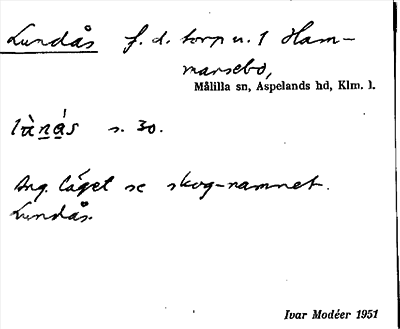 Lundås f. d. torp u. 1 Ham-
marsebo,
Målilla sn, Aspelands hd, Klm. l.
lànás s. 30.
Ang. läget se skog-namnet.
Lundås.
Ivar Modéer 1951